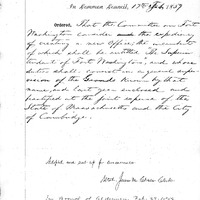 In Common Council, 17th Feb. 1857
Ordered, That the Committee on Fort
Washington consider the expediency
of creating a new Office, the incumbent
of which shall be entitled "The Superin-
tendent of Fort Washington" and whose
duties shall consist in a general super-
vision of the Grounds known by that
name, and last year enclosed and
fortified at the joint expense of the
State of Massachusetts and the City
of Cambridge.
sent up for concurrence
Attest,
Clerk
In Board of Aldermen Feb.